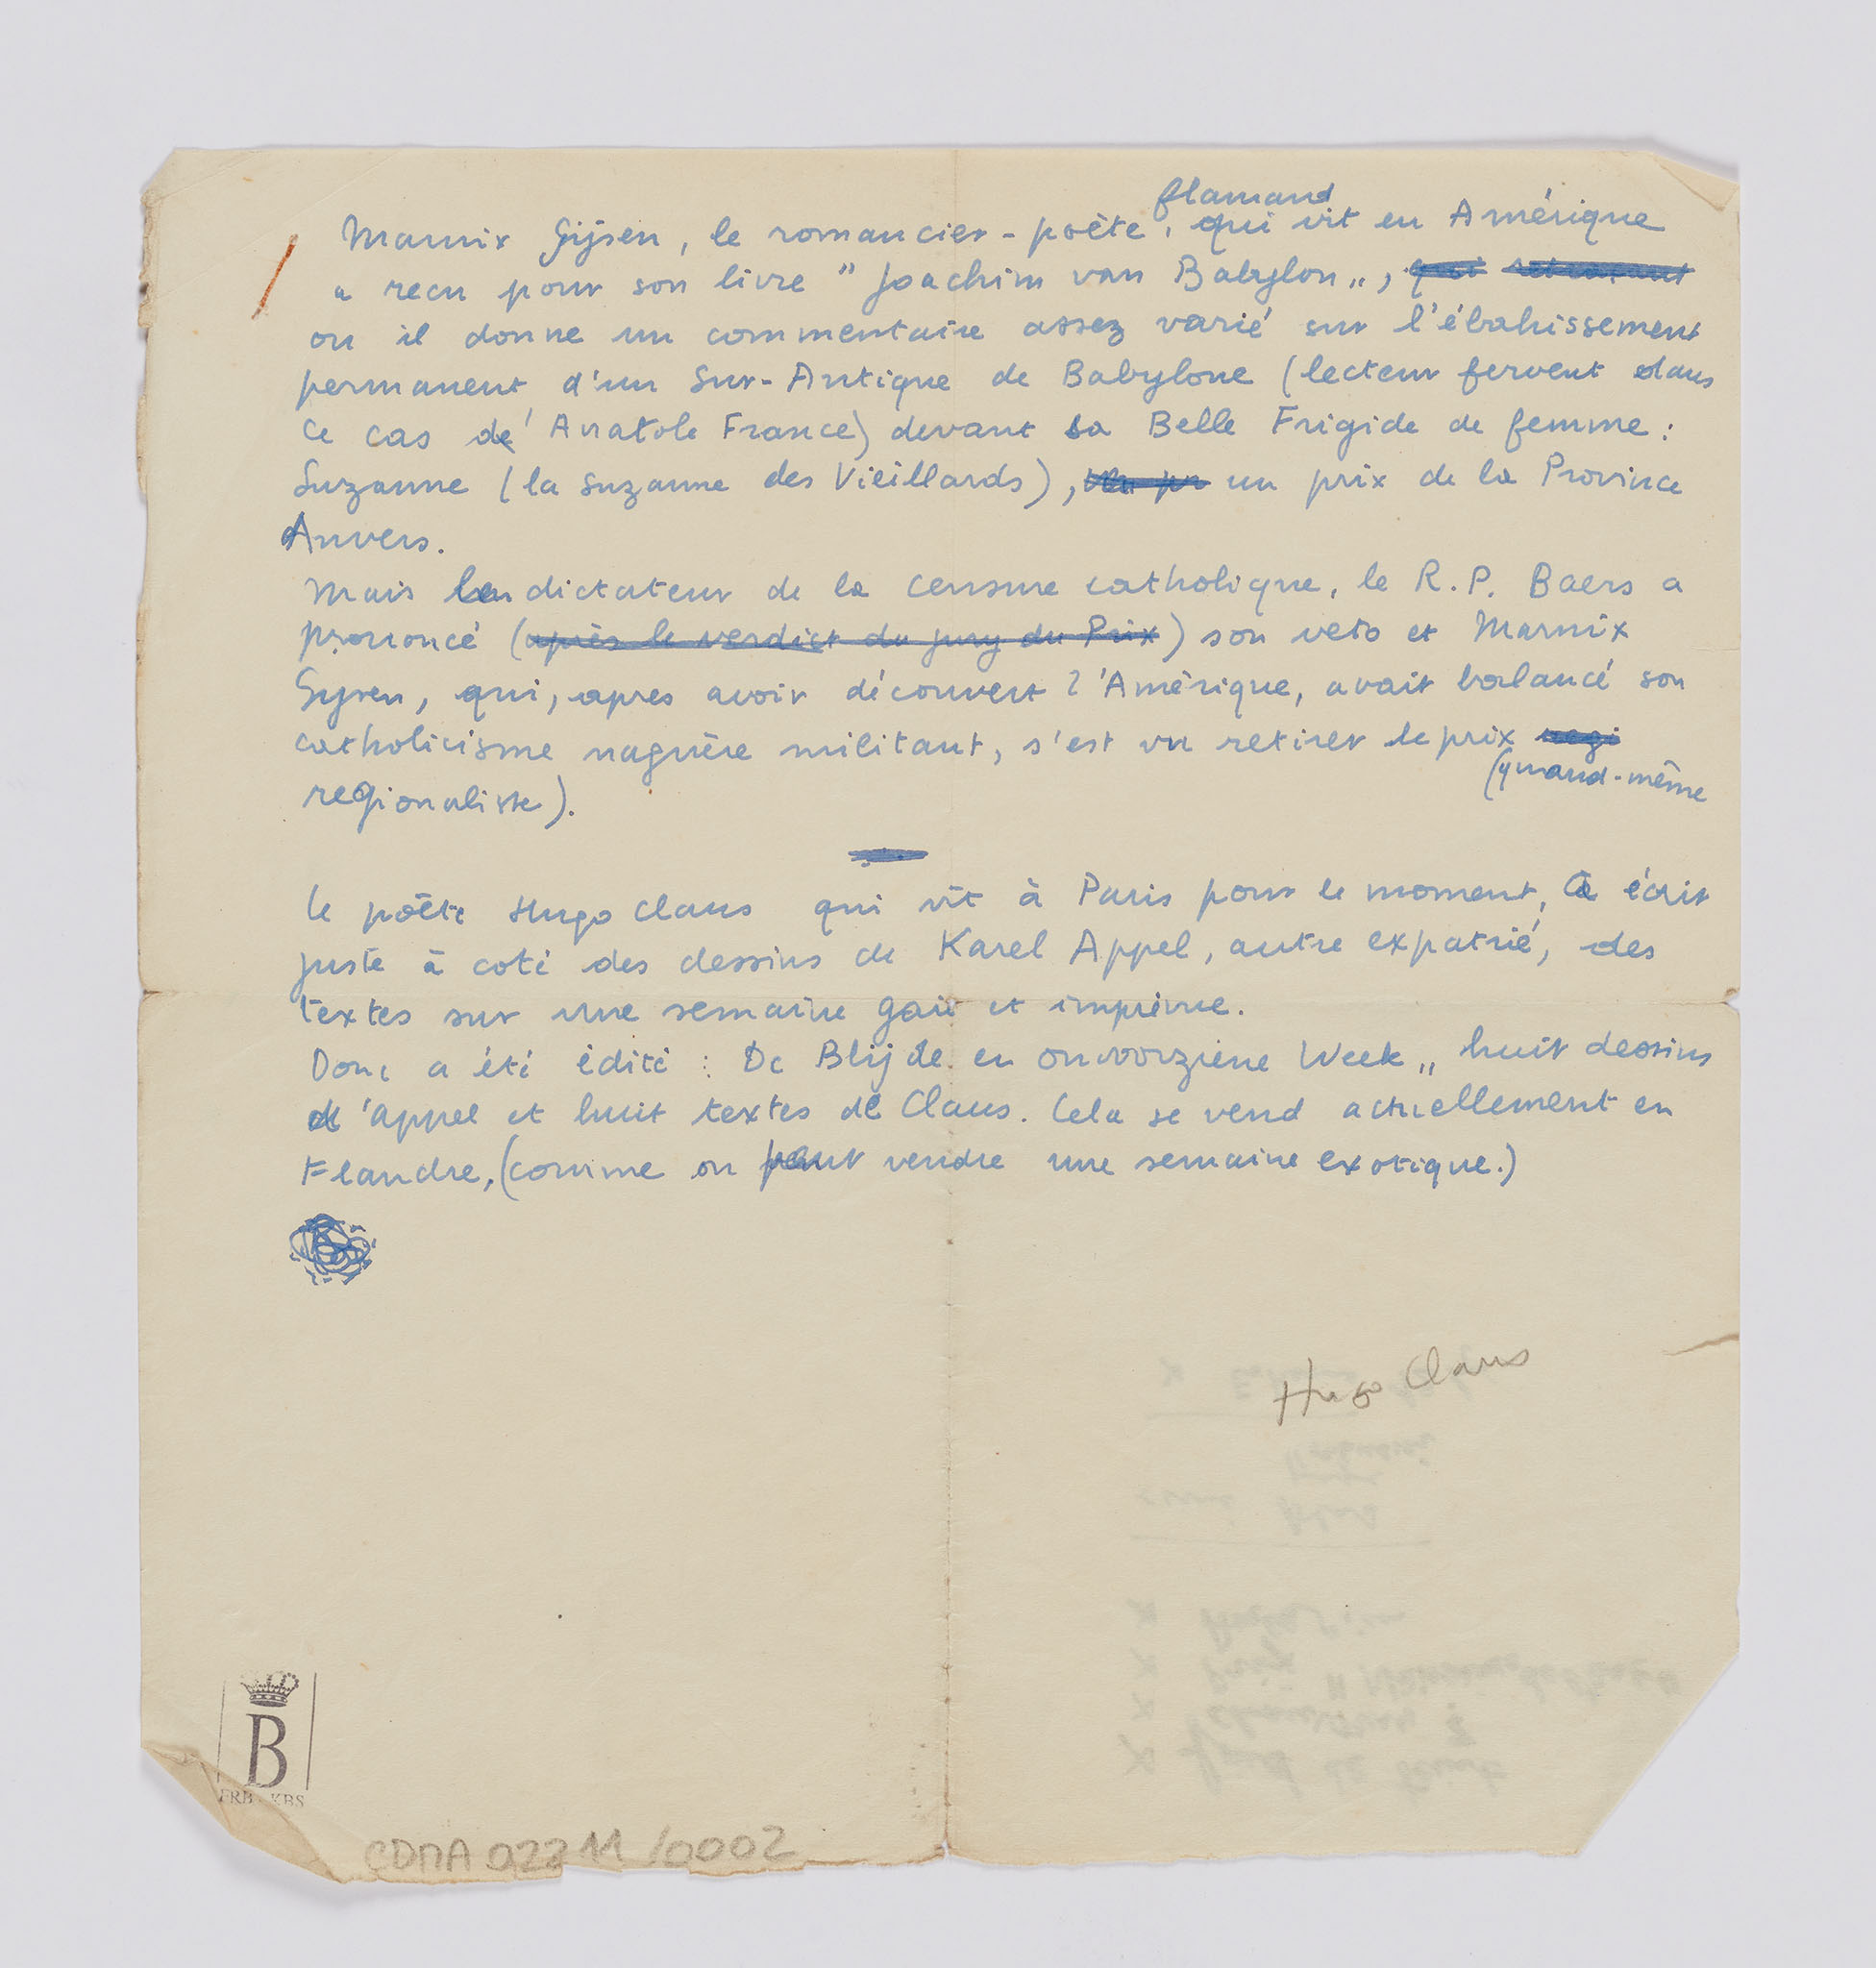 flamand
Marnix Gijsen, le romancier-poète, qui vit en Amérique
a recu pour son livre " Joachim van Babylon „,
ou il donne un commentaire assez varié sur l'ébahissement
permanent d'un Sur-Antique de Babylone (lecteur fervent dans
ce cas de Anatole France) devant sa Belle Frigide de femme :
Suzanne (la Suzanne des Vieillards), un prix de la Province
Anvers.
Mais le dictateur de la censure catholique, le R.P. Baers a
prononcé (après le verdict du jury du Prix) son veto et Marnix
Gysen, qui, apres avoir découvert l'Amérique, avait balancé son
catholicisme naguère militant, s'est vu retirer le prix regi
(quand-même
regionaliste).
Le poète Hugo Claus qui vit à Paris pour le moment, a écrit
juste à coté des dessins de Karel Appel, autre expatrié, des
textes sur une semaine gaie et imprévue.
Donc a été édité : De Blijde en onvoorziene Week „ huit dessins
d'appel et huit textes de Claus. Cela se vend actuellement en
Flandre, (comme on peut vendre une semaine exotique.)
Hugo Claus
B
FRB KBS
CDMA 02211/0002